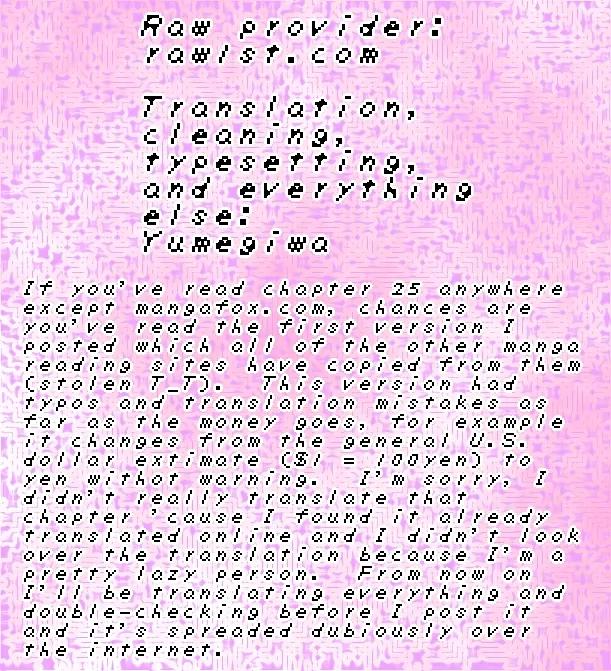 Raw provider:
rawlst.com
Translation,
cleaning,
typesetting,
and everything
else:
Yumegiwa
If you've read chapter 25 anywhere
except mangafox.com, chances are
you've read the first version I
posted which all of the other manga
reading sites have copied from them
(stolen T_T). This version had
typos and translation mistakes as
far as the money goes, for example
it changes from the general U.S.
dollar extimate ($1 = 100yen) to
yen withot warning. I'm sorry, I
didn't really translate that
chapter 'cause I found it already
translated online and I didn't look
over the translation because I'm a
pretty lazy person. From now on
I'll be translating everything and
double-checking before I post it
and it's spreaded dubiously over
the internet.